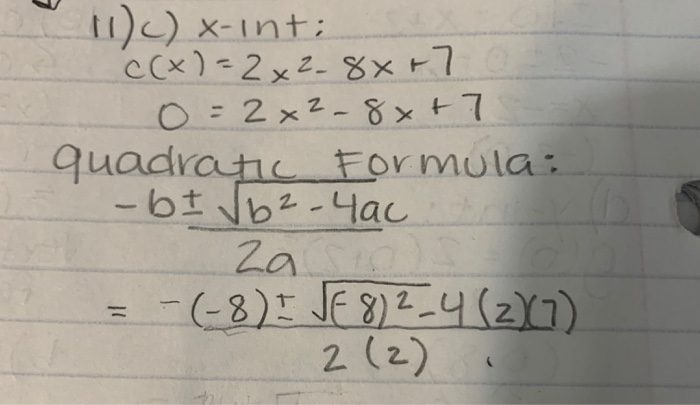 11) c) x-int:
c(x) = 2x² - 8x + 7
0 = 2x² - 8x + 7
quadratic Formula:
-b ± √b² - 4ac
2a
= -(-8) ± √(-8)² - 4(2)(7)
2(2)